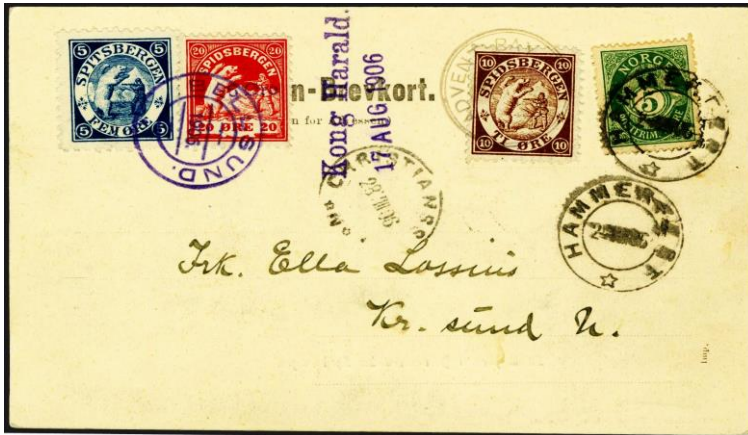 5 5
SPITSBERGEN
5 FEM ØRE 5
20 20
SPIDSBERGEN
20 ØRE 20
SUND.
n-Brevkort.
Kong Harald.
17 AUG 1906
ADVENT BAY
10 10
SPIDSBERGEN
10 TI ØRE 10
NORGE
5
HAMMERFEST
CHRISTIANS
HAMMERFEST
Frk. Ella Lossius
Kr. sund N.
Imp.